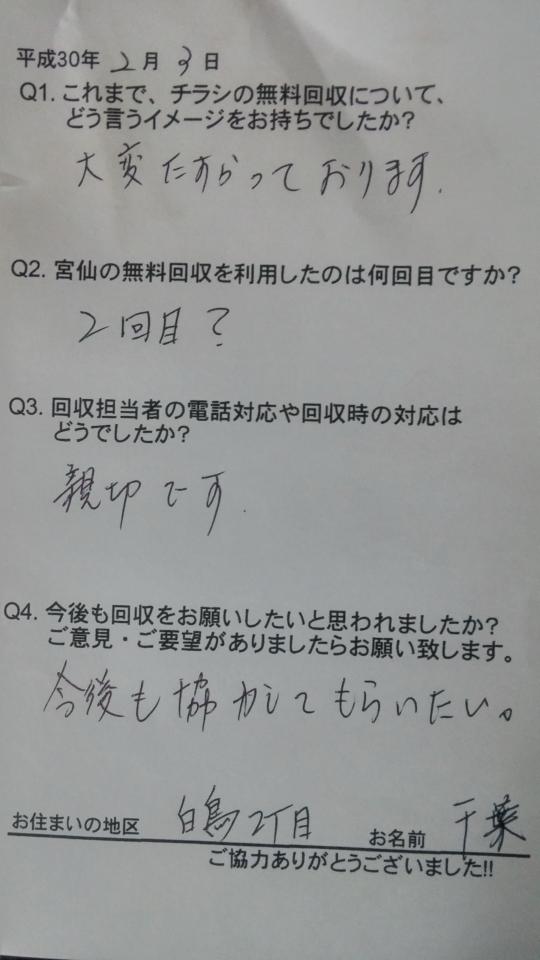 平成30年 2月 3日
Q1. これまで、チラシの無料回収について、
どう言うイメージをお持ちでしたか?
大変たすかっております.
Q2. 宮仙の無料回収を利用したのは何回目ですか?
2回目?
Q3. 回収担当者の電話対応や回収時の対応は
どうでしたか?
親切です.
Q4. 今後も回収をお願いしたいと思われましたか?
ご意見・ご要望がありましたらお願い致します。
今後も協力してもらいたい。
お住まいの地区 白鳥2丁目 お名前 千葉
ご協力ありがとうございました!!